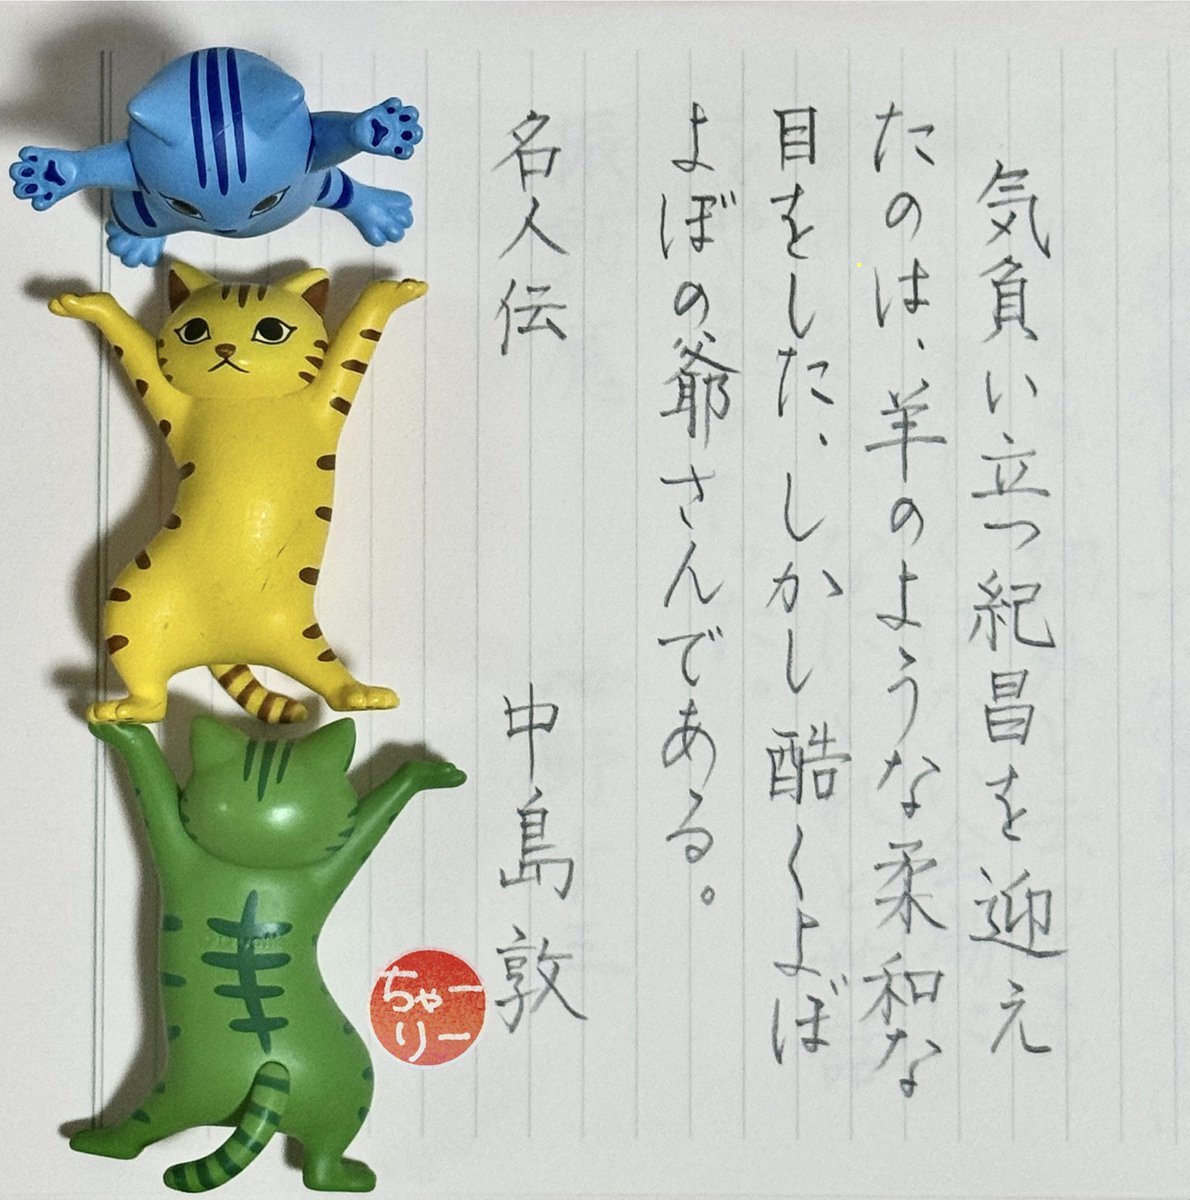 気負い立つ紀昌を迎え
たのは、羊のような柔和な
目をした、しかし酷くよぼ
よぼの爺さんである。
名人伝 中島敦
ちゃー
りー